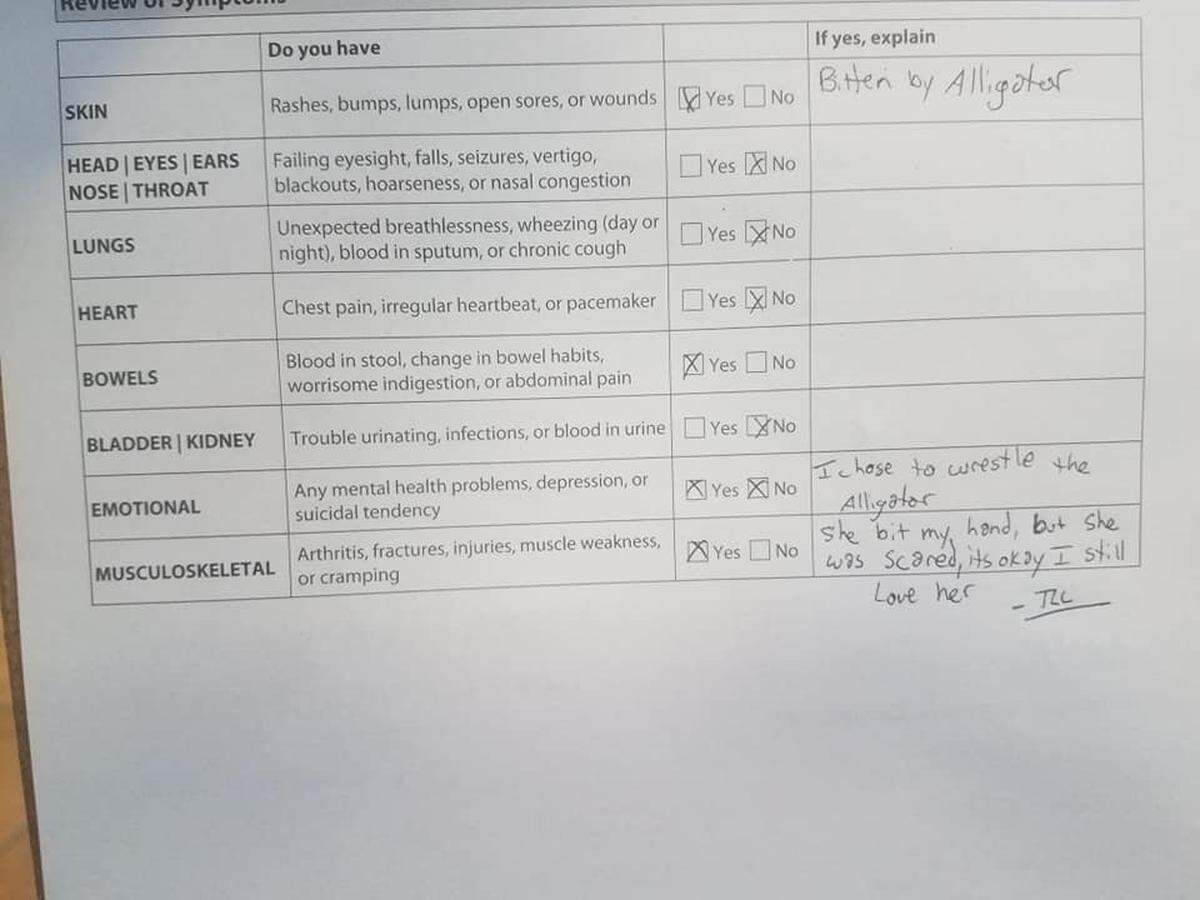 Review of Symptoms
Do you have
If yes, explain
SKIN
Rashes, bumps, lumps, open sores, or wounds
Yes No
Bitten by Alligator
HEAD | EYES | EARS
NOSE | THROAT
Failing eyesight, falls, seizures, vertigo,
blackouts, hoarseness, or nasal congestion
Yes No
LUNGS
Unexpected breathlessness, wheezing (day or
night), blood in sputum, or chronic cough
Yes No
HEART
Chest pain, irregular heartbeat, or pacemaker
Yes No
BOWELS
Blood in stool, change in bowel habits,
worrisome indigestion, or abdominal pain
Yes No
BLADDER | KIDNEY
Trouble urinating, infections, or blood in urine
Yes No
EMOTIONAL
Any mental health problems, depression, or
suicidal tendency
Yes No
I chose to wrestle the
Alligator
MUSCULOSKELETAL
Arthritis, fractures, injuries, muscle weakness,
or cramping
Yes No
She bit my hand, but she
was scared, its okay I still
Love her - TLC